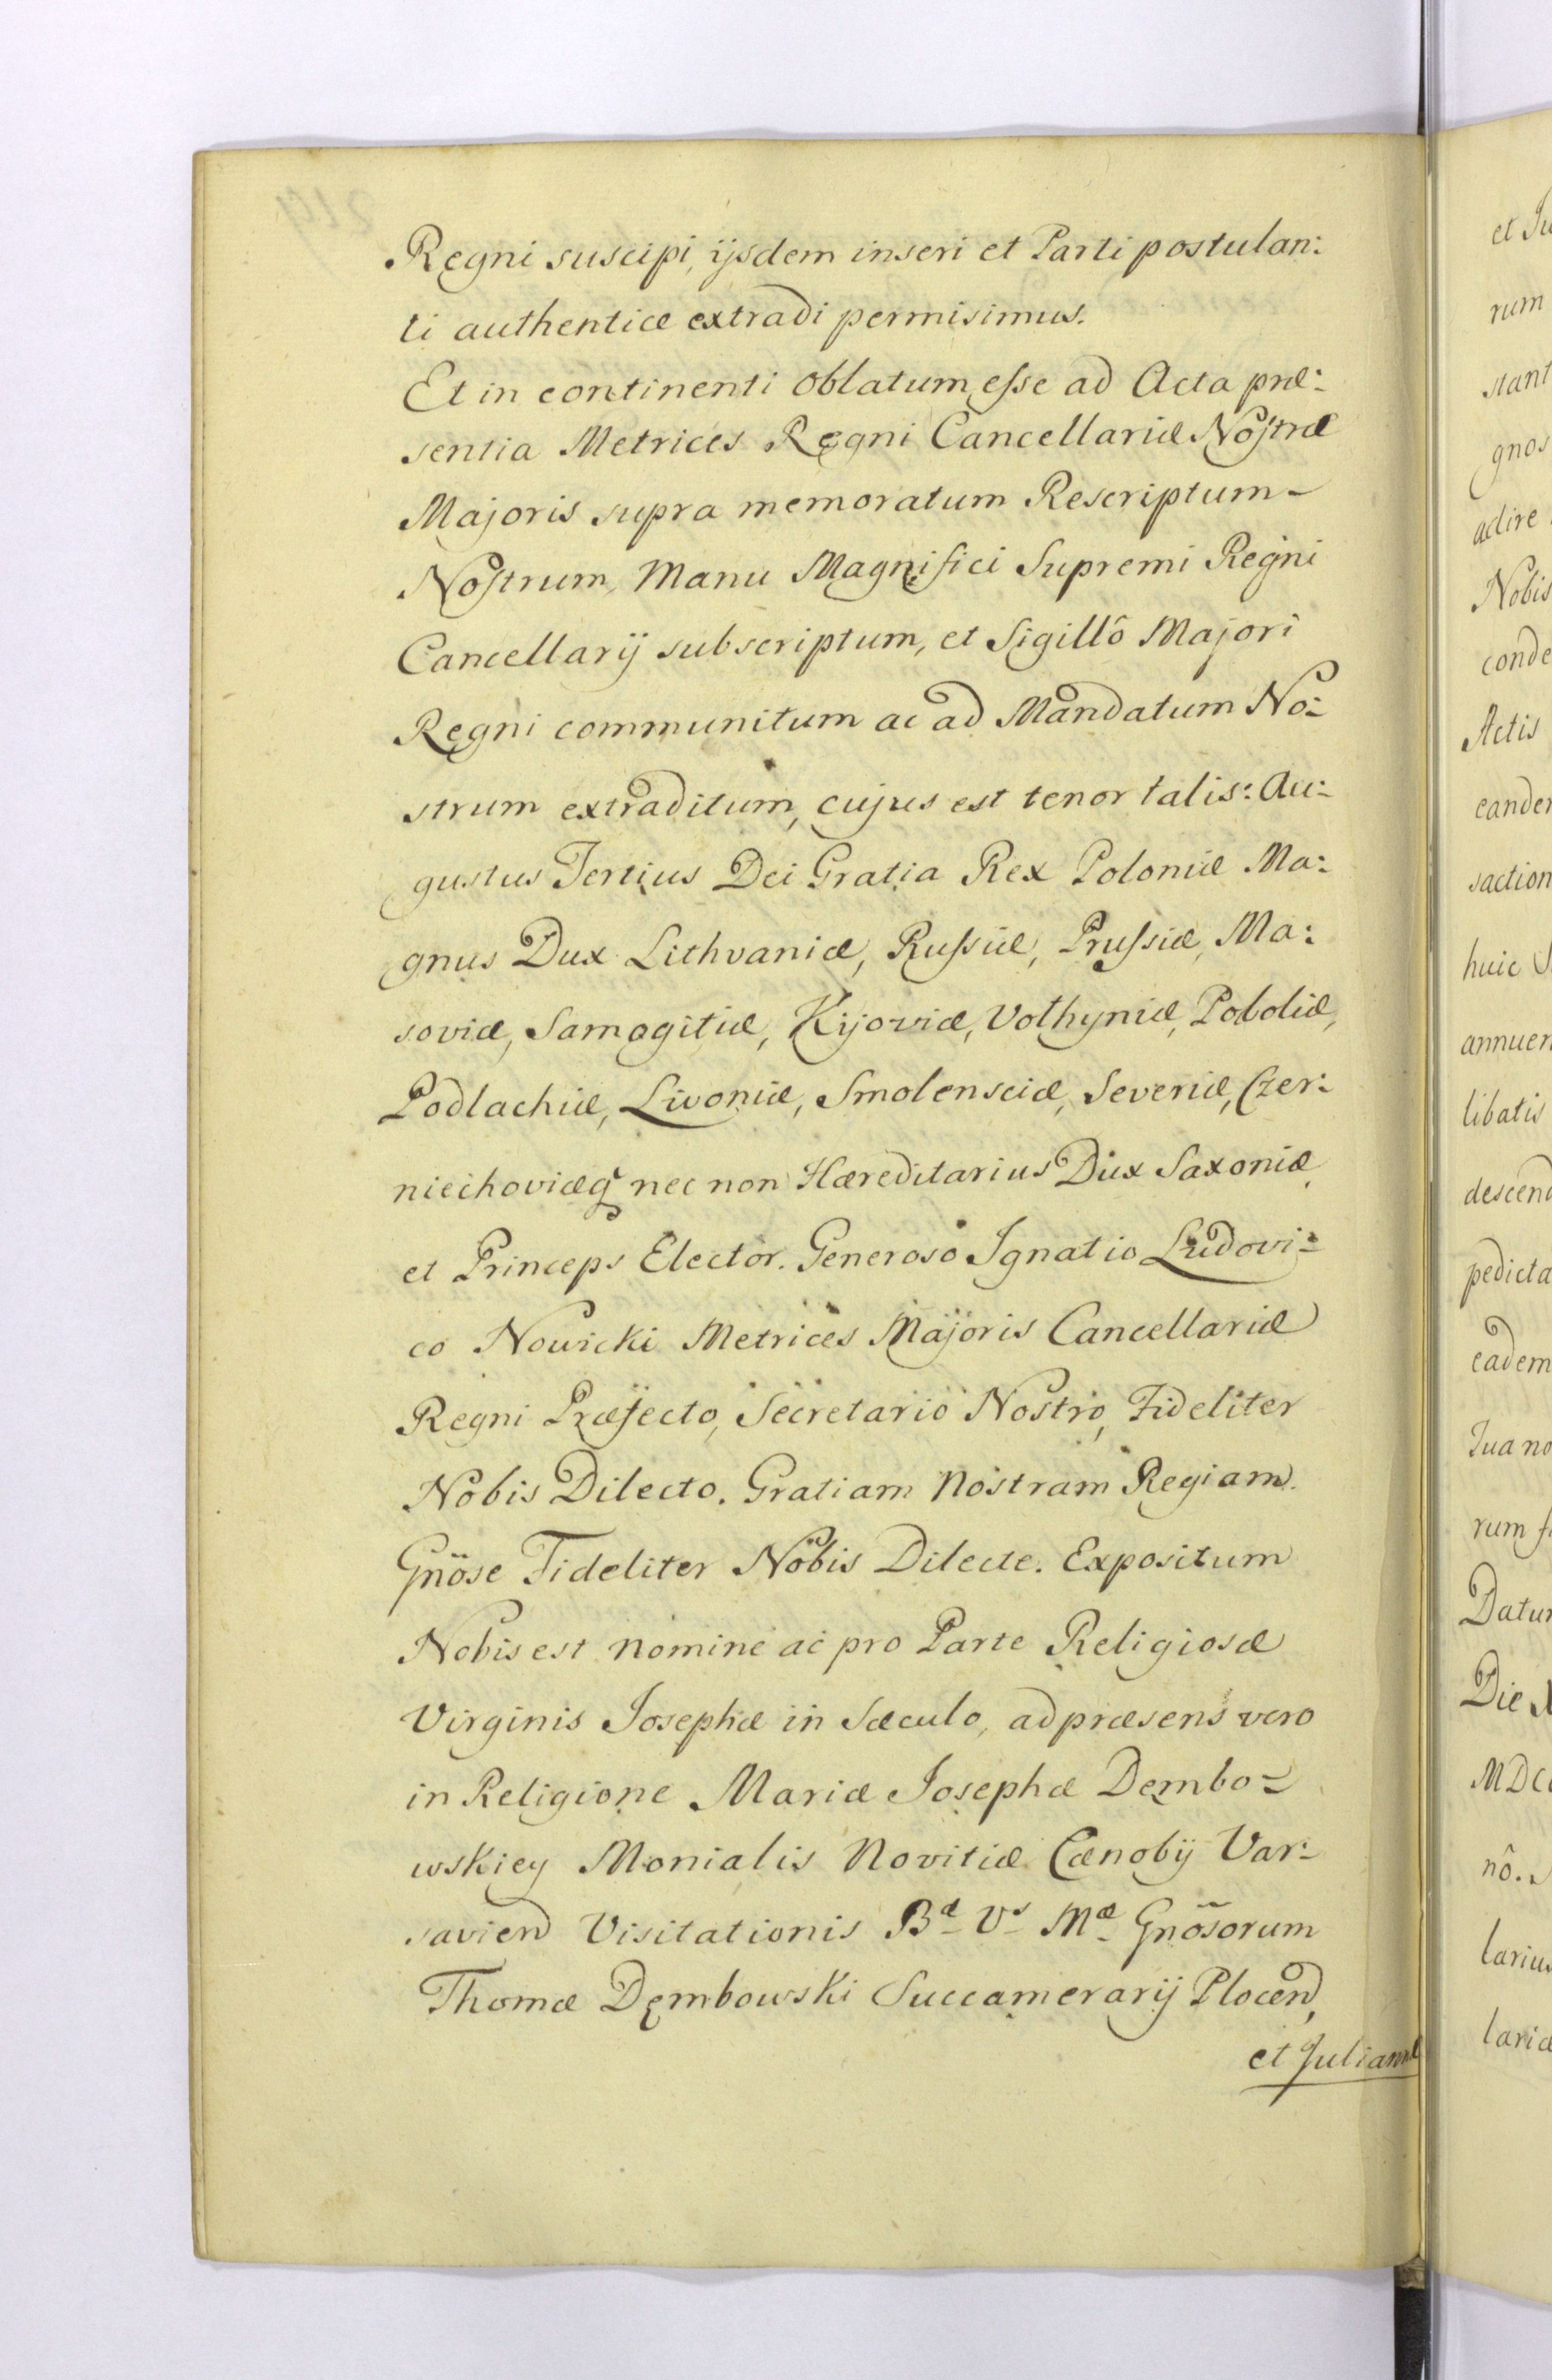 Regni suscipi, ijsdem inseri et Parti postulan:
ti authenticæ extradi permisimus.
Et in continenti oblatum esse ad Acta præ:
sentia Metrices Regni Cancellariæ Nostræ
Majoris supra memoratum Rescriptum-
Nostrum, Manu Magnifici Supremi Regni
Cancellarij subscriptum, et Sigillô Majori
Regni communitum ac ad Mandatum No:
strum extraditum, cujus est tenor talis: Au:
gustus Tertius Dei Gratia Rex Poloniæ Ma:
gnus Dux Lithvaniæ, Russiæ, Prussiæ, Ma:
soviæ, Samogitiæ, Kijoviæ, Volhyniæ, Podoliæ,
Podlachiæ, Livoniæ, Smolensciæ, Severiæ, Czer:
niechoviæq nec non Hæreditarius Dux Saxoniæ
et Princeps Elector. Generoso Ignatio Ludovi:
co Nowicki Metrices Majoris Cancellariæ
Regni Præfecto, Secretario Nostro, Fideliter
Nobis Dilecto. Gratiam Nostram Regiam.
Gnöse Fideliter Nobis Dilecte. Expositum
Nobis est nomine ac pro Parte Religiosæ
Virginis Josephæ in Sæculo, ad præsens vero
in Religione Mariæ Josephæ Dembo-
wskiey Monialis Novitiæ Cænobij Var:
savien Visitationis Bæ Vs Mæ Gnõsorum
Thomæ Dembowski Succamerarij Plocen,
et Juliannæ
et Ju
rum
stant
gnos
adire
Nobis
conde
Actis
eander
saction
huic S
annuen
libatis
descend
pedicta
eadem
Tua no
rum f
Datum
Die
MDCC
nô.
larius
lariæ